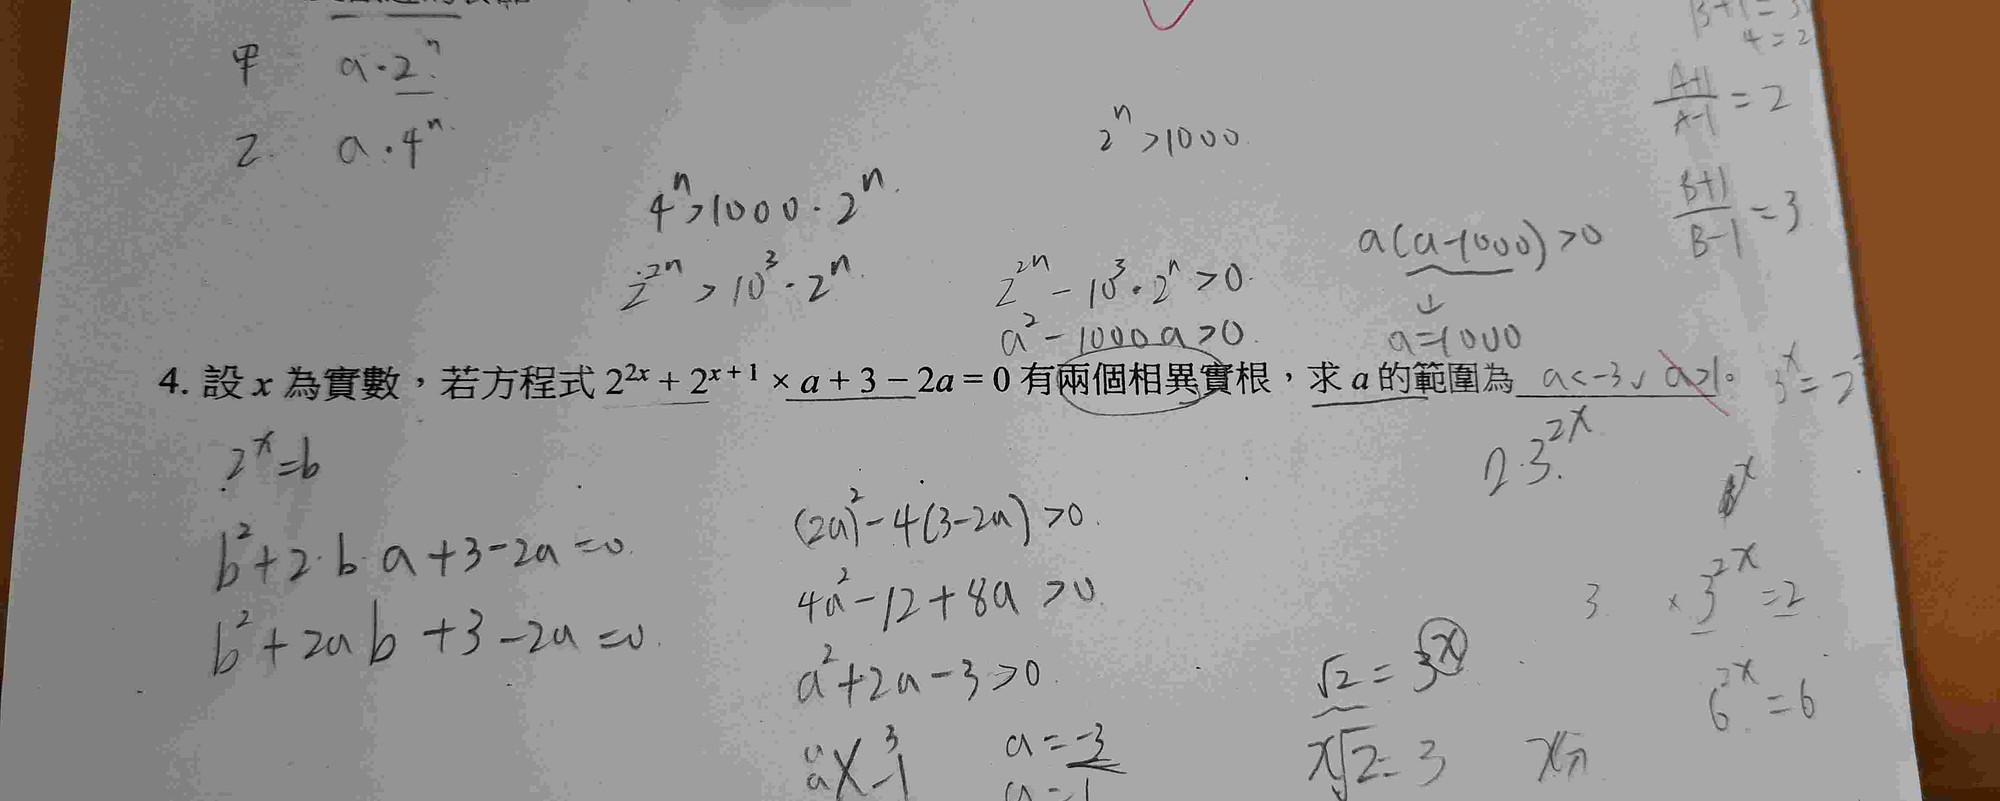 甲 a·2ⁿ
乙 a·4ⁿ
2ⁿ>1000
4ⁿ>1000·2ⁿ
2²ⁿ>10³·2ⁿ
2²ⁿ-10³·2ⁿ>0
a²-1000a>0
a(a-1000)>0
↓
a=1000
B+1=3
4=2
A+1/A-1=2
B+1/B-1=3
4. 設 x 為實數，若方程式 2²ˣ + 2ˣ⁺¹ × a + 3 − 2a = 0 有兩個相異實根，求 a 的範圍為 a<-3, a>1。
3ˣ=2
2ˣ=b
b²+2·b·a+3-2a=0
b²+2ab+3-2a=0
(2a)²-4(3-2a)>0
4a²-12+8a>0
a²+2a-3>0
a 3
a -1
a=-3
a=1
2·3²ˣ
3 ×3²ˣ=2
6²ˣ=6
√2=3ˣ
x√2=3